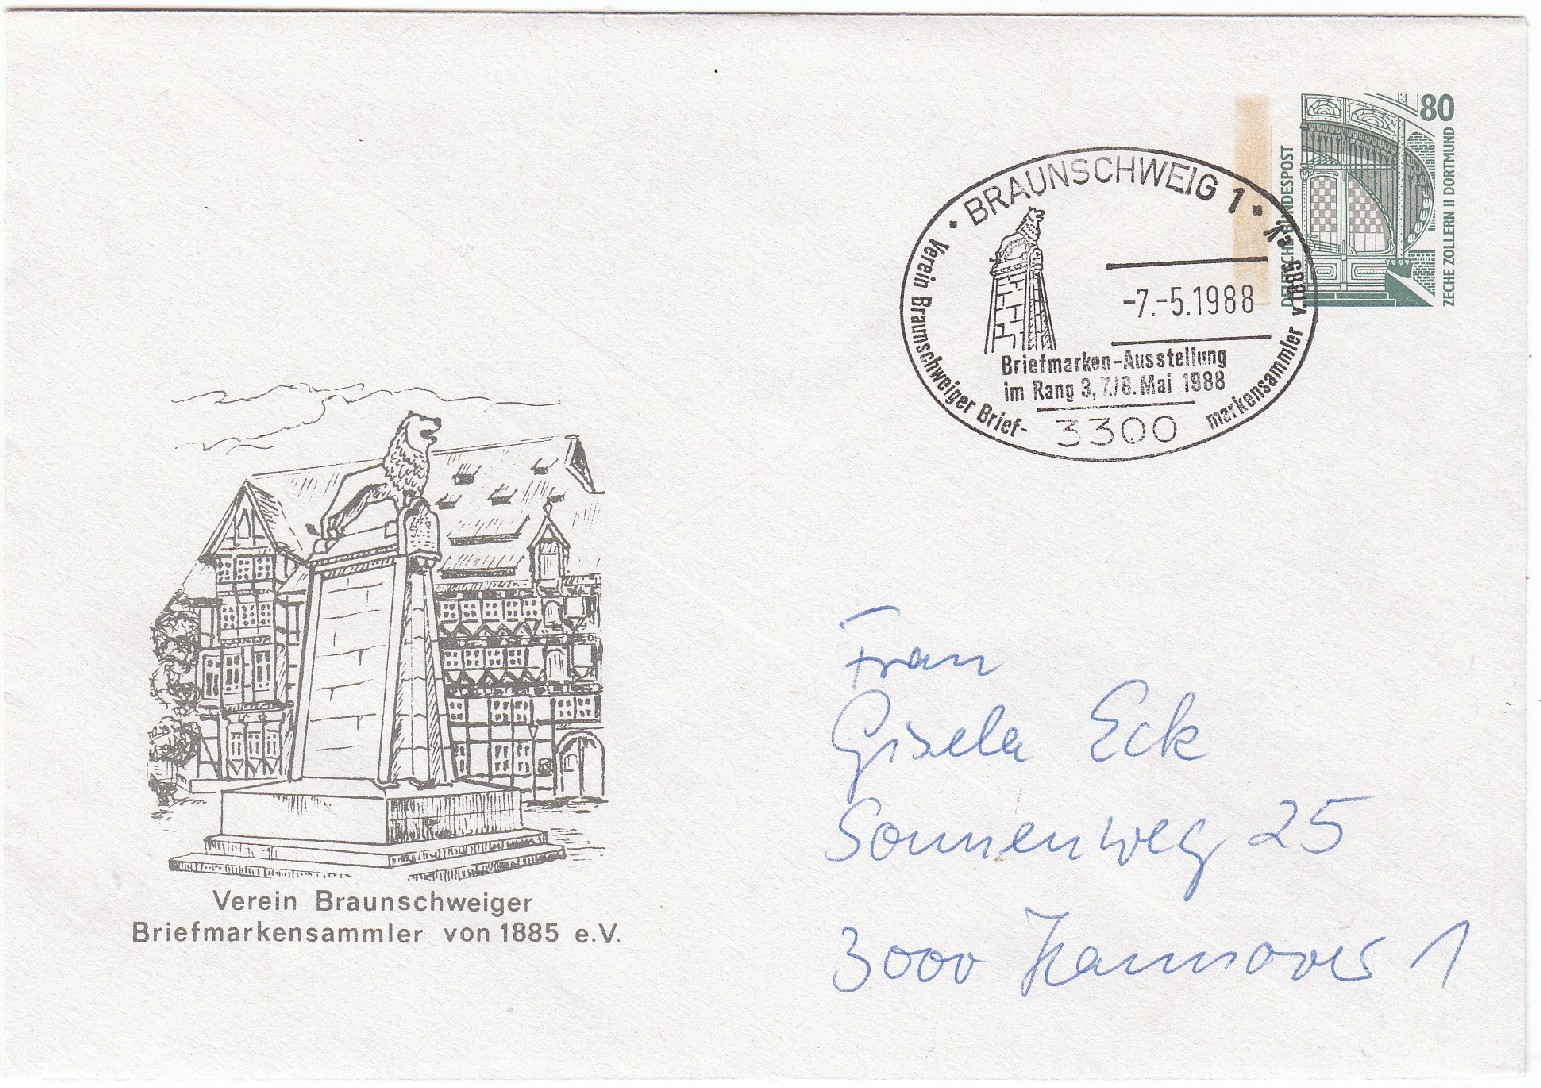 80
DEUTSCHE BUNDESPOST
ZECHE ZOLLERN II DORTMUND
BRAUNSCHWEIG 1
-7.-5.1988
Briefmarken-Ausstellung
im Rang 3, 7./8. Mai 1988
3300
Verein Braunschweiger Brief-
markensammler v.1885 e.V.
Verein Braunschweiger
Briefmarkensammler von 1885 e.V.
Frau
Gisela Eck
Sonnenweg 25
3000 Hannover 1